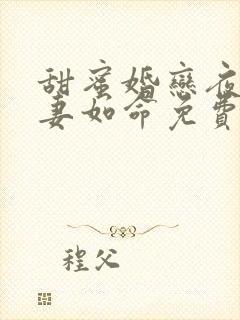 甜蜜婚戀夜
妻如命免費
程父